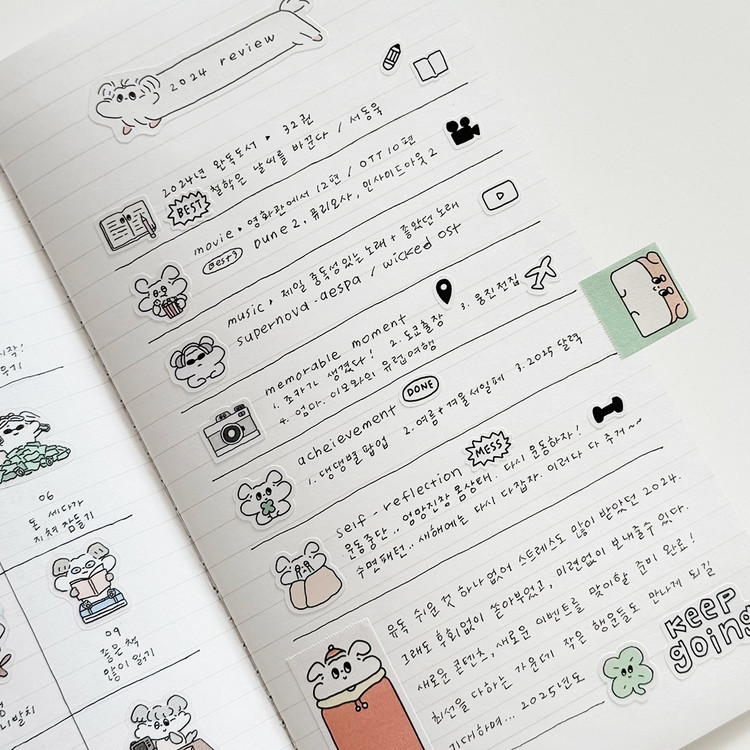 2024 review
2024년 완독도서 ▸ 32권
BEST 철학은 날씨를 바꾼다 / 서동욱
movie ▸ 영화관에서 12편 / OTT 10편
BEST 3 Dune 2, 퓨리오사, 인사이드아웃 2
music ▸ 제일 중독성있는 노래 + 좋았던 노래
supernova - aespa / wicked ost
memorable moment
1. 조카가 생겼다! 2. 도쿄출장 3. 웅진전집
4. 엄마, 이모와의 유럽여행
acheievement DONE
1. 댕댕별 팝업 2. 여름+겨울세일페 3. 2025 달력
self - reflection MESS
운동중단.. 엉망진창 몸상태. 다시 운동하자!
수면패턴.. 새해에는 다시 다잡자. 이러다 다 죽거~~
유독 쉬운 것 하나 없어 스트레스도 많이 받았던 2024.
그래도 후회없이 쏟아부었고, 미련없이 보내줄수 있다.
새로운 콘텐츠, 새로운 이벤트를 맞이할 준비 완료!
최선을 다하는 가운데 작은 행운들도 만나게 되길
기대하며... 2025년도
KEEP
going
06
돈 세다가
지쳐 잠들기
09
좋은 책
많이 읽기